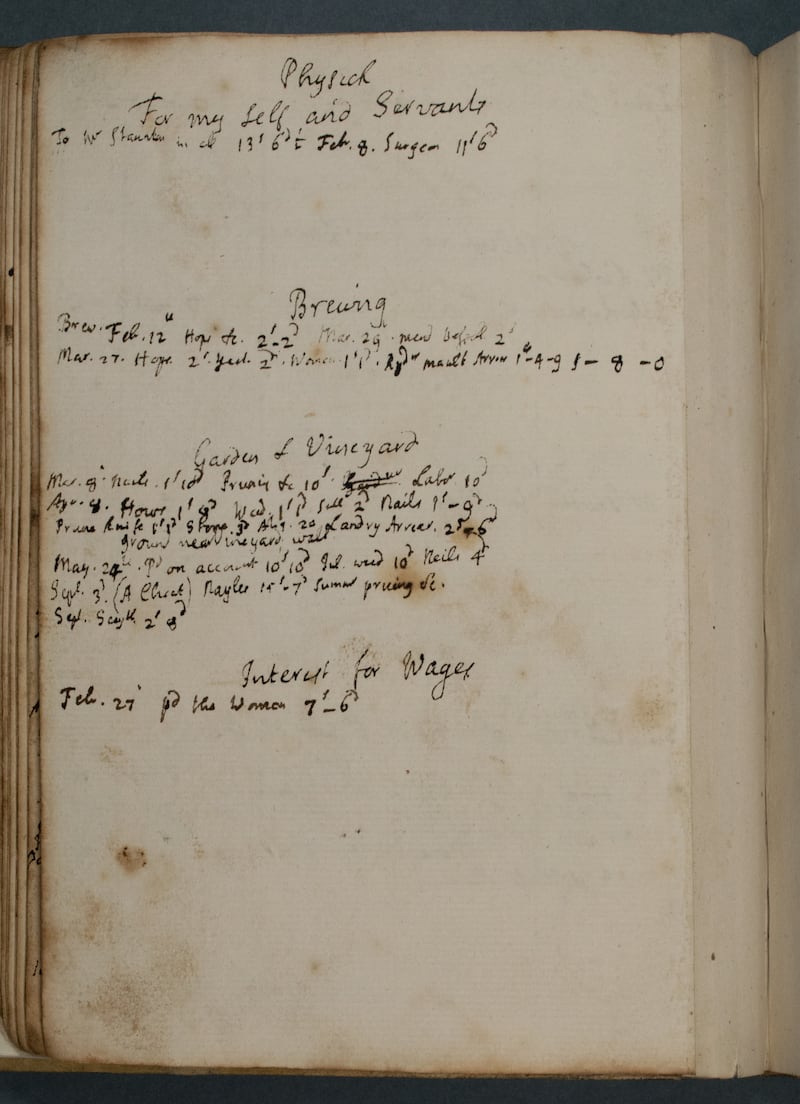 Physick
For my self and Servants
To Mr in all 13s 6d Feb. 8. Surgeon 11s 6d
Brewing
Brew. Feb. 12 Hops &c. 2s-2d Mar. 29 mend vessel 2s
Mar. 27. Hops 2s yest 2d. Women 1s 1d. mault Arrer 1-4-9 5-8-0
Garden & Vineyard
Mar. 9 Neils. 1s 10d Pruning &c 10s Labr 10d
Apr. 8. Hows 1s 8d Weed. 1s 1d 2d Nails 1s-9d
Prune knife 1s 1d 3d Aug. 20 Landry Arrear. 2s-6d
ground near vineyard wall
May. 24th. Pd on account 10s 10d weed 10d Neils 4d
Sept. 3d. (A Check) Nayles 15s-7d Summer pruning &c.
Sept. Scyth 2s 8d
Interest for Wages
Feb. 27 pd the Women 7s-6d